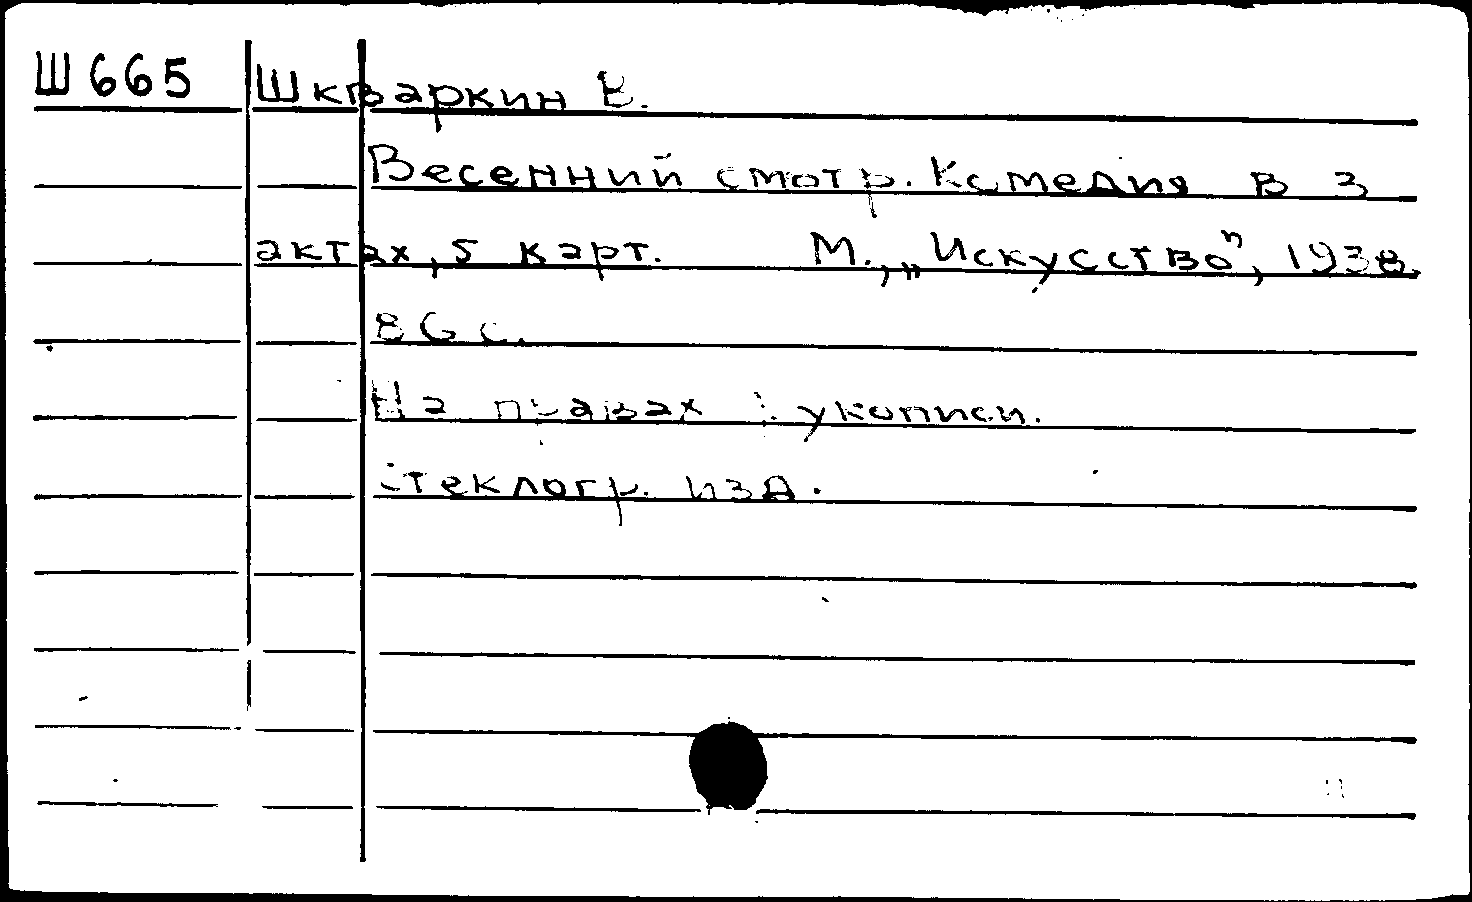 Ш665 Шкваркин В.
Весенний смотр. Комедия в 3
актах, 5 карт. М., „Искусство", 1938.
86 с.
На правах рукописи.
Стеклогр. изд.